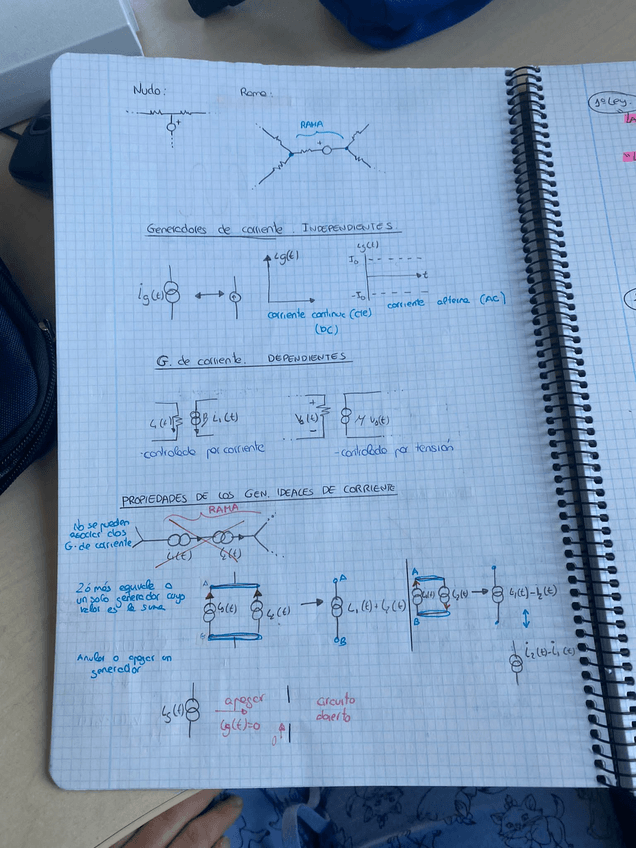 Nudo:
Rama:
RAMA
+
+
Generadores de corriente INDEPENDIENTES
ig(t)
ig(t)
ig(t)
I₀
-I₀
t
corriente continua (cte)
(DC)
corriente alterna (AC)
G. de corriente. DEPENDIENTES
i₁(t)
β i₁(t)
+
V₀(t)
-
μ V₀(t)
-controlado por corriente
-controlado por tensión
PROPIEDADES DE LOS GEN. IDEALES DE CORRIENTE
RAMA
No se pueden
asociar dos
G. de corriente
i₁(t)
i₂(t)
2 ó más equivale a
un solo generador cuyo
valor es la suma
A
B
i₁(t)
i₂(t)
A
i₁(t) + i₂(t)
B
A
B
i₁(t)
i₂(t)
i₁(t) - i₂(t)
i₂(t) - i₁(t)
Anular o apagar un
generador
ig(t)
apagar
ig(t)=0
circuito
abierto
1ª Ley